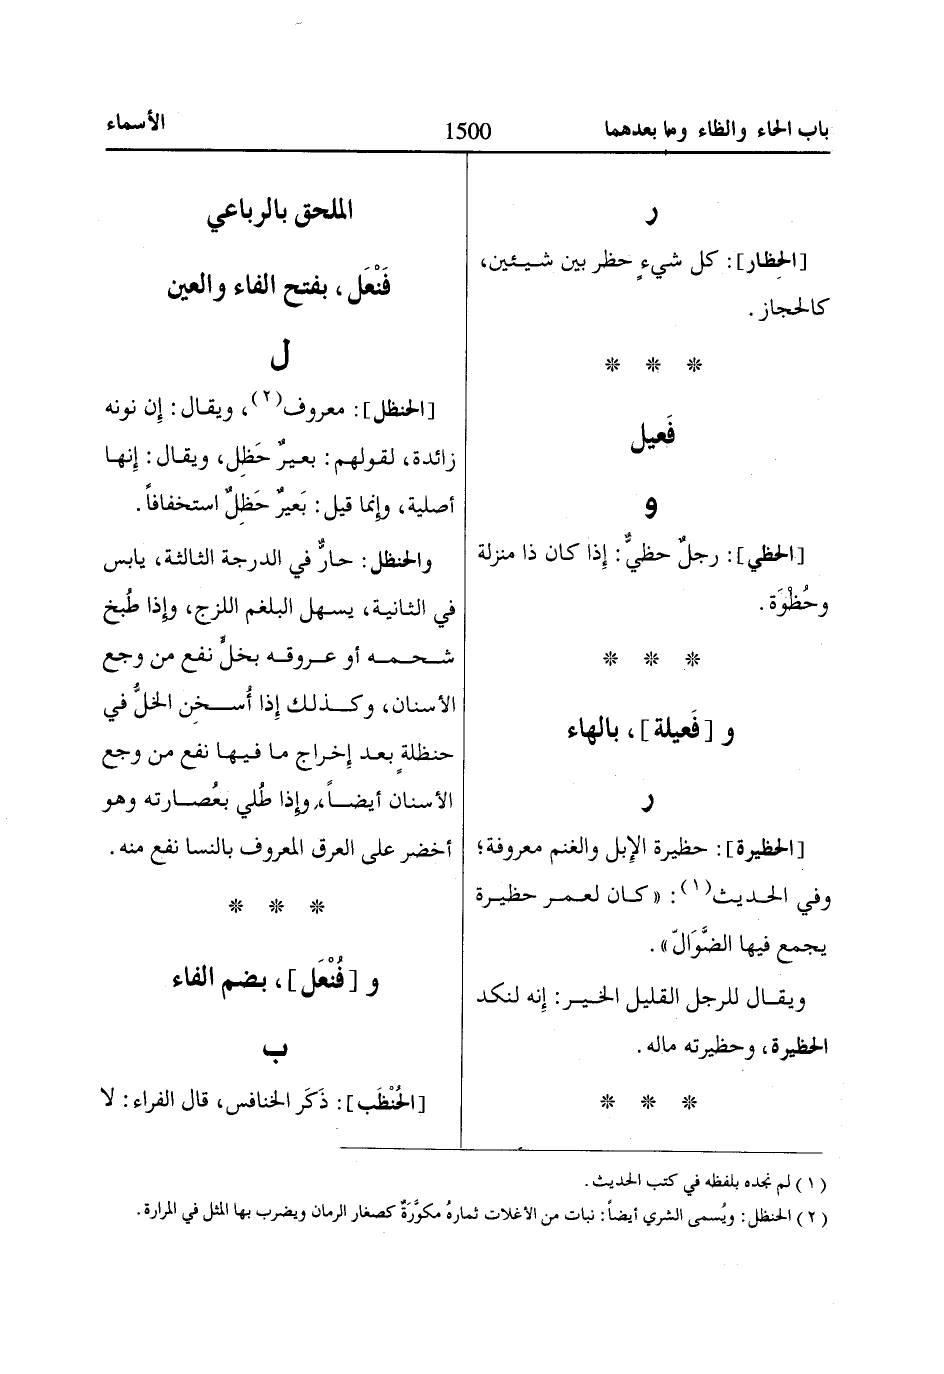 باب الحاء والظاء وما بعدهما
1500
الأسماء
ر
[الحِظار]: كل شيءٍ حظر بين شيئين،
كالحجاز.
* * *
فَعيل
و
[الحظي]: رجلٌ حظيٌّ: إذا كان ذا منزلة
وحُظْوَة.
* * *
و [فَعيلة]، بالهاء
ر
[الحظيرة]: حظيرة الإبل والغنم معروفة؛
وفي الحديث(١): «كان لعمر حظيرة
يجمع فيها الضَّوَالّ».
ويقال للرجل القليل الخير: إنه لنكد
الحظيرة، وحظيرته ماله.
* * *
الملحق بالرباعي
فَنْعَل، بفتح الفاء والعين
ل
[الحنظل]: معروف(٢)، ويقال: إن نونه
زائدة، لقولهم: بعيرٌ حَظِل، ويقال: إنها
أصلية، وإنما قيل: بَعيرٌ حَظِلٌ استخفافاً.
والحنظل: حارٌّ في الدرجة الثالثة، يابس
في الثانية، يسهل البلغم اللزج، وإذا طُبخ
شحمه أو عروقه بخلٍّ نفع من وجع
الأسنان، وكذلك إذا أُسخِن الخلُّ في
حنظلةٍ بعد إخراج ما فيها نفع من وجع
الأسنان أيضاً، وإذا طُلي بعُصارته وهو
أخضر على العرق المعروف بالنسا نفع منه.
* * *
و [فُنْعَل]، بضم الفاء
ب
[الحُنْظَب]: ذَكَر الخنافس، قال الفراء: لا
(١) لم نجده بلفظه في كتب الحديث.
(٢) الحنظل: ويُسمى الشري أيضاً: نبات من الأغلاث ثمارهُ مكوَّرَةٌ كصغار الرمان ويضرب بها المثل في المرارة.